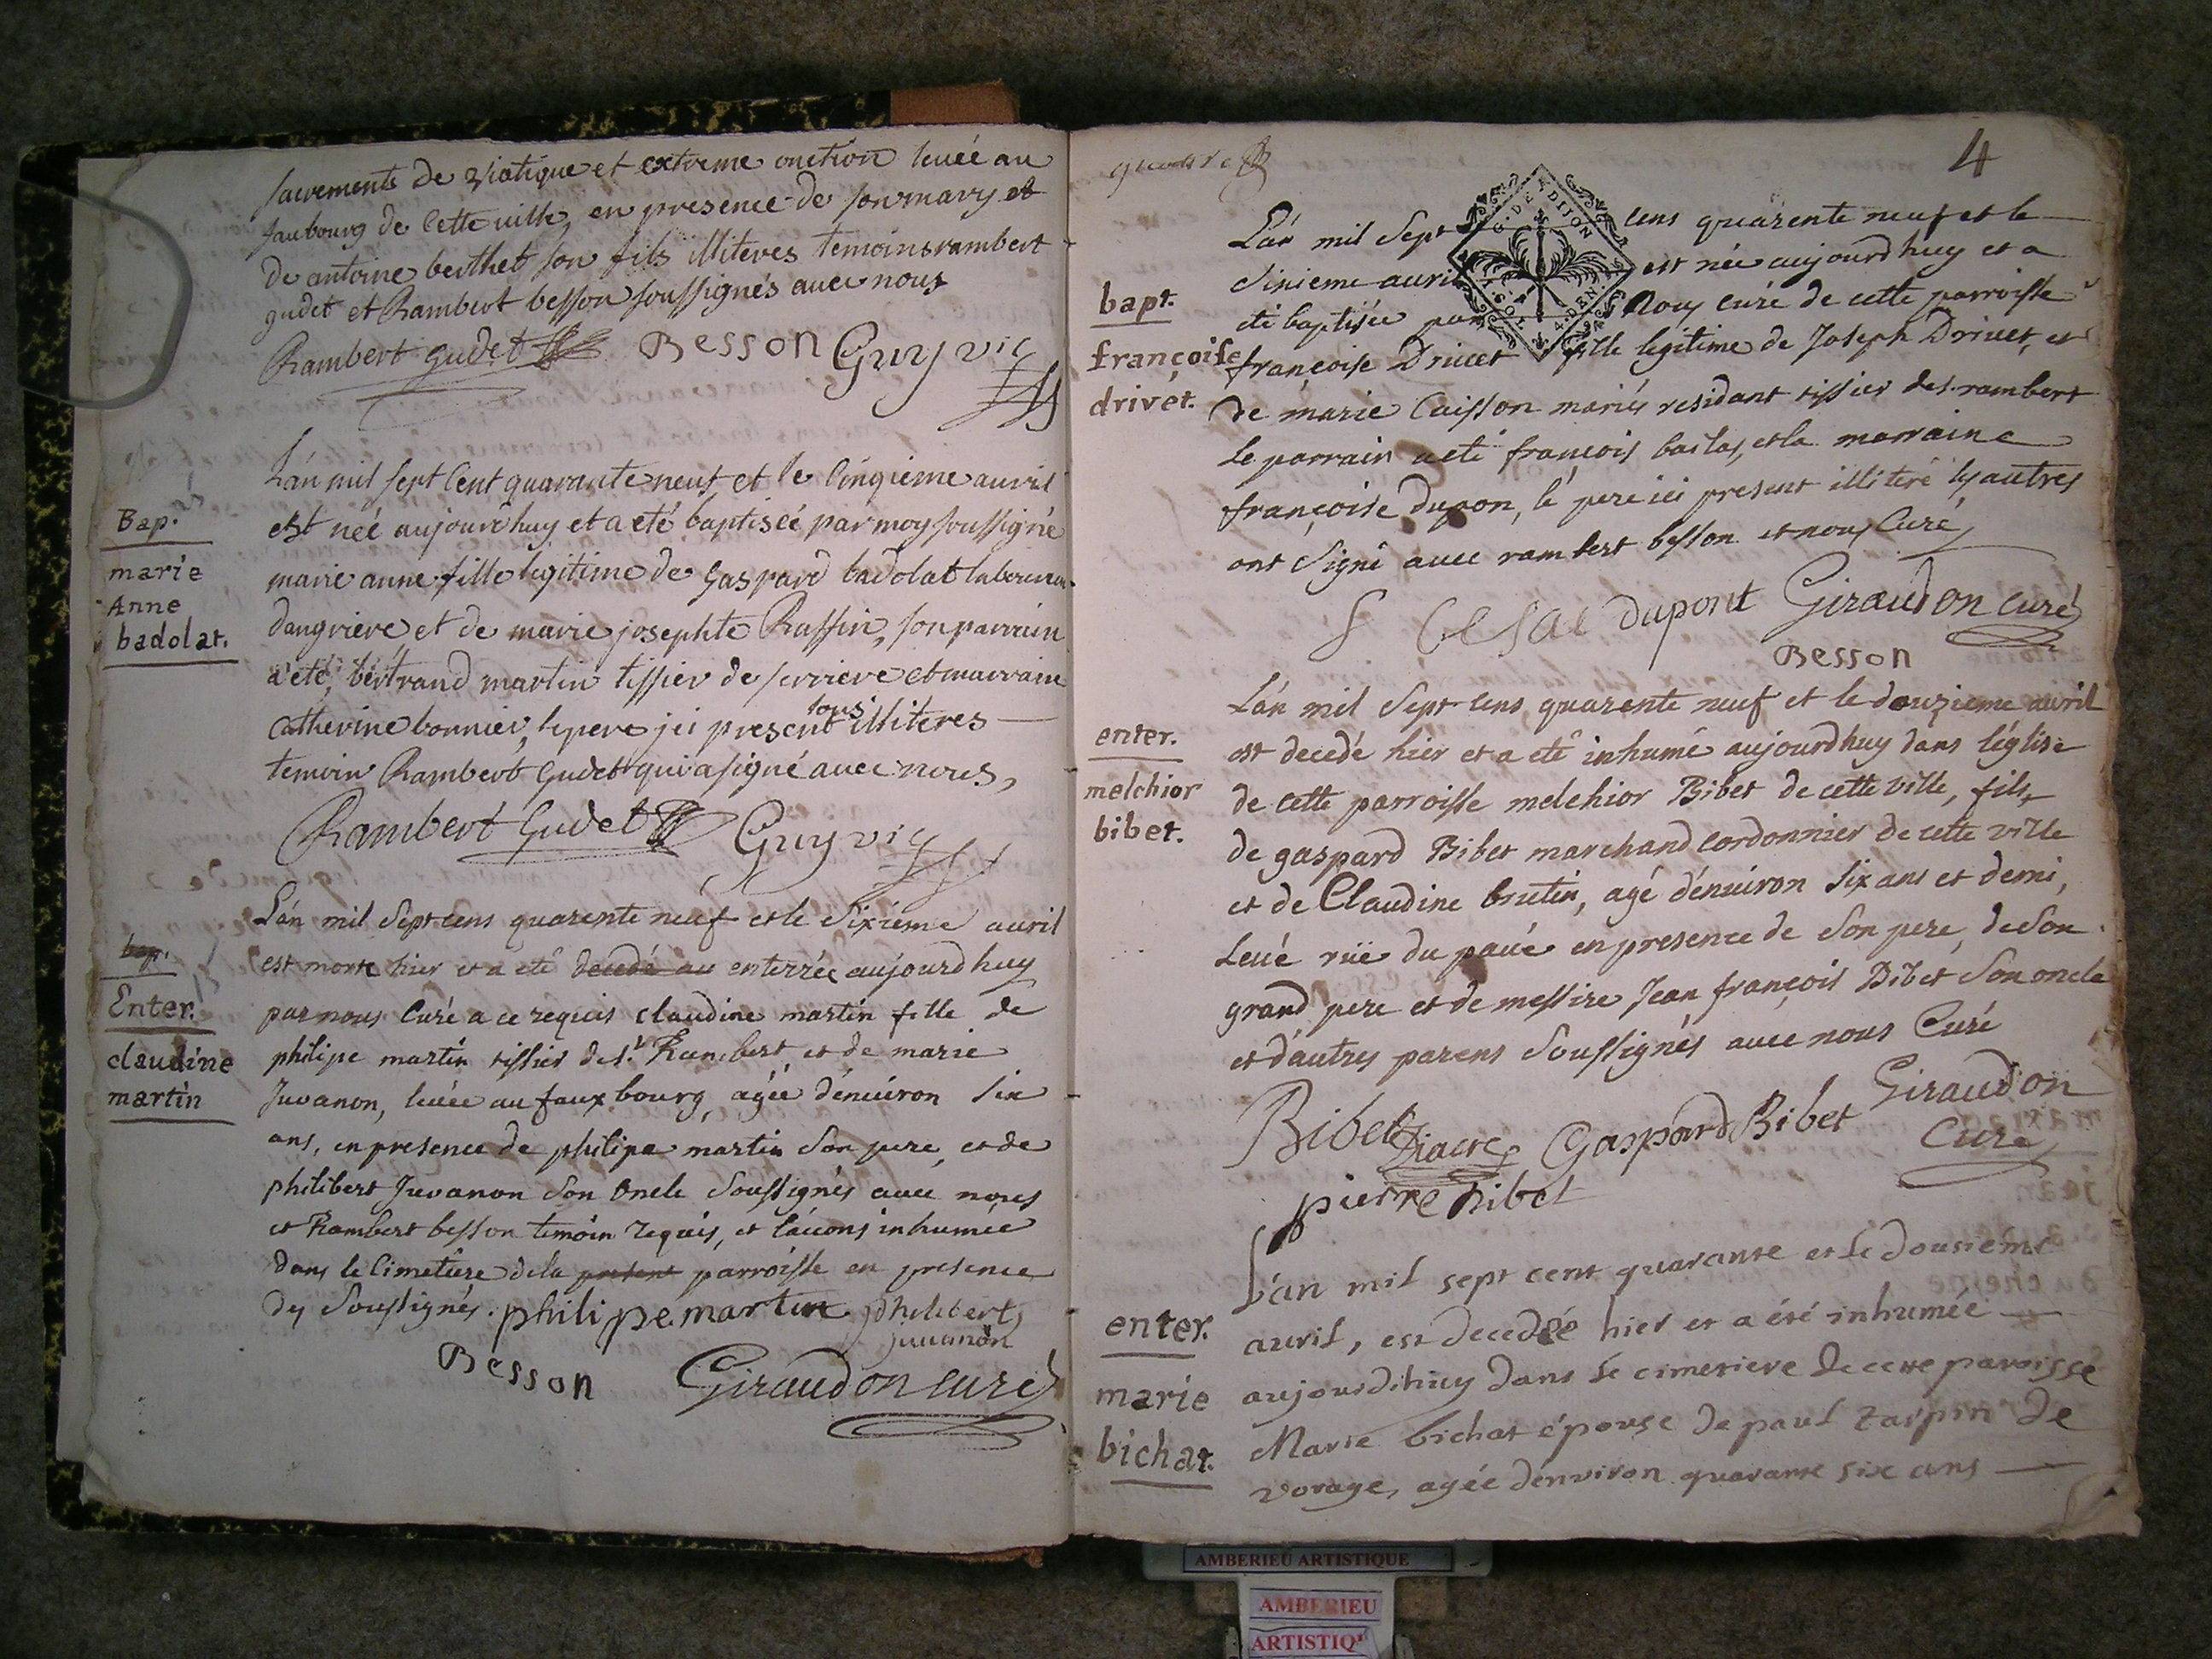 sacrements de viatique et extreme onction levée au
fauboury de cette ville, en presence de son mary et
de antoine berthet son fils illiteres temoins rambert
gudet et Rambert besson soussignés avec nous
Rambert gudet Besson Guy vic
Bap.
marie
Anne
badolat.
L'án mil sept Cent quarante neuf et le Cinqieme avril
est neé aujourd'huy et a eté baptiseé par moy soussigné
marie anne fille legitime de Gaspard badolat laboureur
dangrieve et de marie josephte Ruffin, son parrain
a eté, bértrand martin tissier de serriere et marraine
Catherine bonnier, le pere ici present tous illiteres
temoin Rambert Gudet qui a signé avec nous,
Rambert Gudet Guy vic
bap.
Enter.
claudine
martin
L'án mil Sept cens quarente neuf et le Sixieme auril
est morte hier et a eté decedé au enterrée aujourdhuy
par nous Curé a ce requis claudine martin fille de
philipe martin tissier de St. Rambert et de marie
Juvanon, levée au fauxbourg, agée dénuiron six
ans, en presence de philipe martin Son pere, et de
philibert Juvanon Son Oncle Soussignés avec nous
et Rambert besson temoin requis, et l'avons inhumée
dans le Cimetiere de la present parroisse en presence
des Soussignés. philipe martin philibert
juvanon
Besson Giraudon curé
quatre
4
G. DE DIJON
SOL
4. DEN.
bapt.
françoise
drivét.
L'án mil Sept cens quarente neuf et le
Sixieme auril est née aujourdhuy et a
eté baptisée par Nous curé de cette parroisse
françoise Drivet fille legitime de Joseph Drivet, et
de marie Cuisson mariés residant tissier de s. rambert
Le parrain a eté françois baslas, et la marraine
françoise dupon, lé pere ici present illiteré les autres
ont Signé avec rambert besson et nous Curé
dupont Giraudon curé
Besson
enter.
melchior
bibet.
L'án mil Sept cens quarente neuf et le douzieme avril
est decedé hier et a eté inhumé aujourdhuy dans l'église
de cette parroisse melchior Bibet de cette ville, fils
de gaspard Bibet marchand cordonnier de cette ville
et de Claudine brutin, agé dénuiron Six ans et demi,
Levé rüe du pavé en presence de Son pere, de Son
grand pere et de messire Jean françois Bibet Son oncle
et d'autres parens Soussignés avec nous Curé
Bibet Diacre Gaspard Bibet Giraudon
Curé
pierre bibet
enter.
marie
bichat.
L'án mil sept cent quarante et le dousieme
avril, est decedée hier et a été inhumée
aujourdihuy dans le cimetiere de cette paroisse
Marie bichat épouse de paul tarpin de
vorage, agée dénviron quarante six ans
AMBERIEU ARTISTIQUE
AMBERIEU
ARTISTIQ